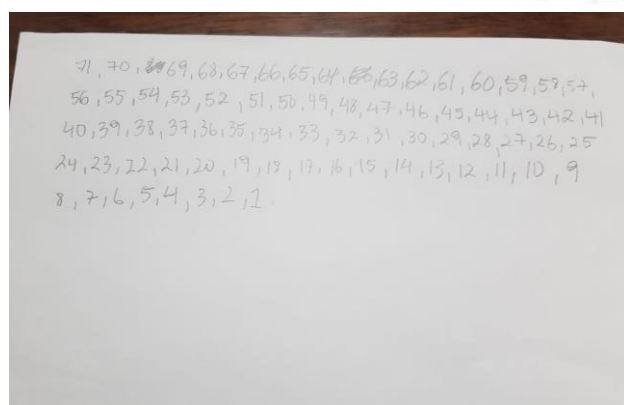 71, 70, 69, 68, 67, 66, 65, 64, 63, 62, 61, 60, 59, 58, 57,
56, 55, 54, 53, 52, 51, 50, 49, 48, 47, 46, 45, 44, 43, 42, 41
40, 39, 38, 37, 36, 35, 34, 33, 32, 31, 30, 29, 28, 27, 26, 25
24, 23, 22, 21, 20, 19, 18, 17, 16, 15, 14, 13, 12, 11, 10, 9
8, 7, 6, 5, 4, 3, 2, 1